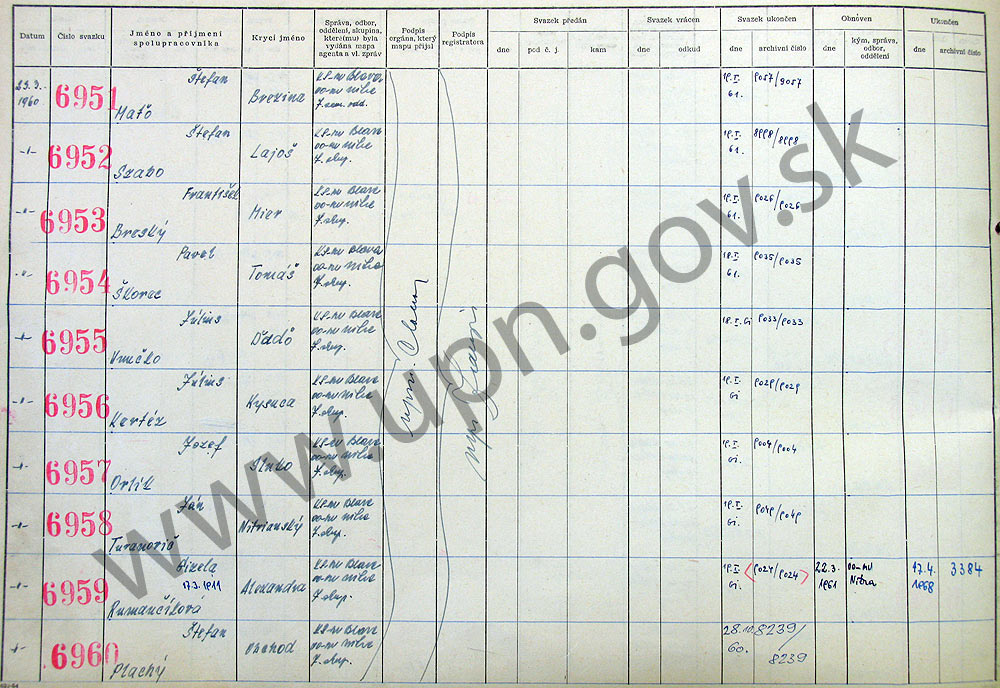 Datum
Číslo svazku
Jméno a příjmení
spolupracovníka
Krycí jméno
Správa, odbor,
oddělení, skupina,
kterému(í) byla
vydána mapa
agenta a vl. zpráv
Podpis
orgána, který
mapu přijal
Podpis
registratora
Svazek předán
dne
pod č. j.
kam
Svazek vrácen
dne
odkud
Svazek ukončen
dne
archivní číslo
Obnoven
dne
kým, správa,
odbor,
oddělení
Ukončen
dne
archivní číslo
23.3.
1960
6951
Štefan
Maťo
Brezina
19.I.
61.
9057/9057
-"-
6952
Štefan
Szabo
Lajoš
7. skup.
19.I.
61.
8998/8998
-"-
6953
František
Breský
Mier
7. skup.
19.I.
61.
9026/9026
-"-
6954
Pavel
Škorec
Tomáš
7. skup.
18.I.
61.
9035/9035
-"-
6955
Július
Vnučko
Ďaďo
7. skup.
18.I.61
9033/9033
-"-
6956
Július
Kertéz
Kysuca
7. skup.
19.I.
61.
9029/9029
-"-
6957
Jozef
Orlík
Slnko
7. skup.
19.I.
61.
9004/9004
-"-
6958
Ján
Turanovič
Nitrianský
7. skup.
19.I.
61.
9049/9049
-"-
6959
Gizela
17.3.1911
Rumančíková
Alexandra
7. skup.
19.I.
61.
9024/9024
22.3.
1961
Nitra
17.4.
1968
3384
-"-
6960
Štefan
Plachý
Obchod
7. skup.
28.10.
60.
8239/
8239
www.upn.gov.sk